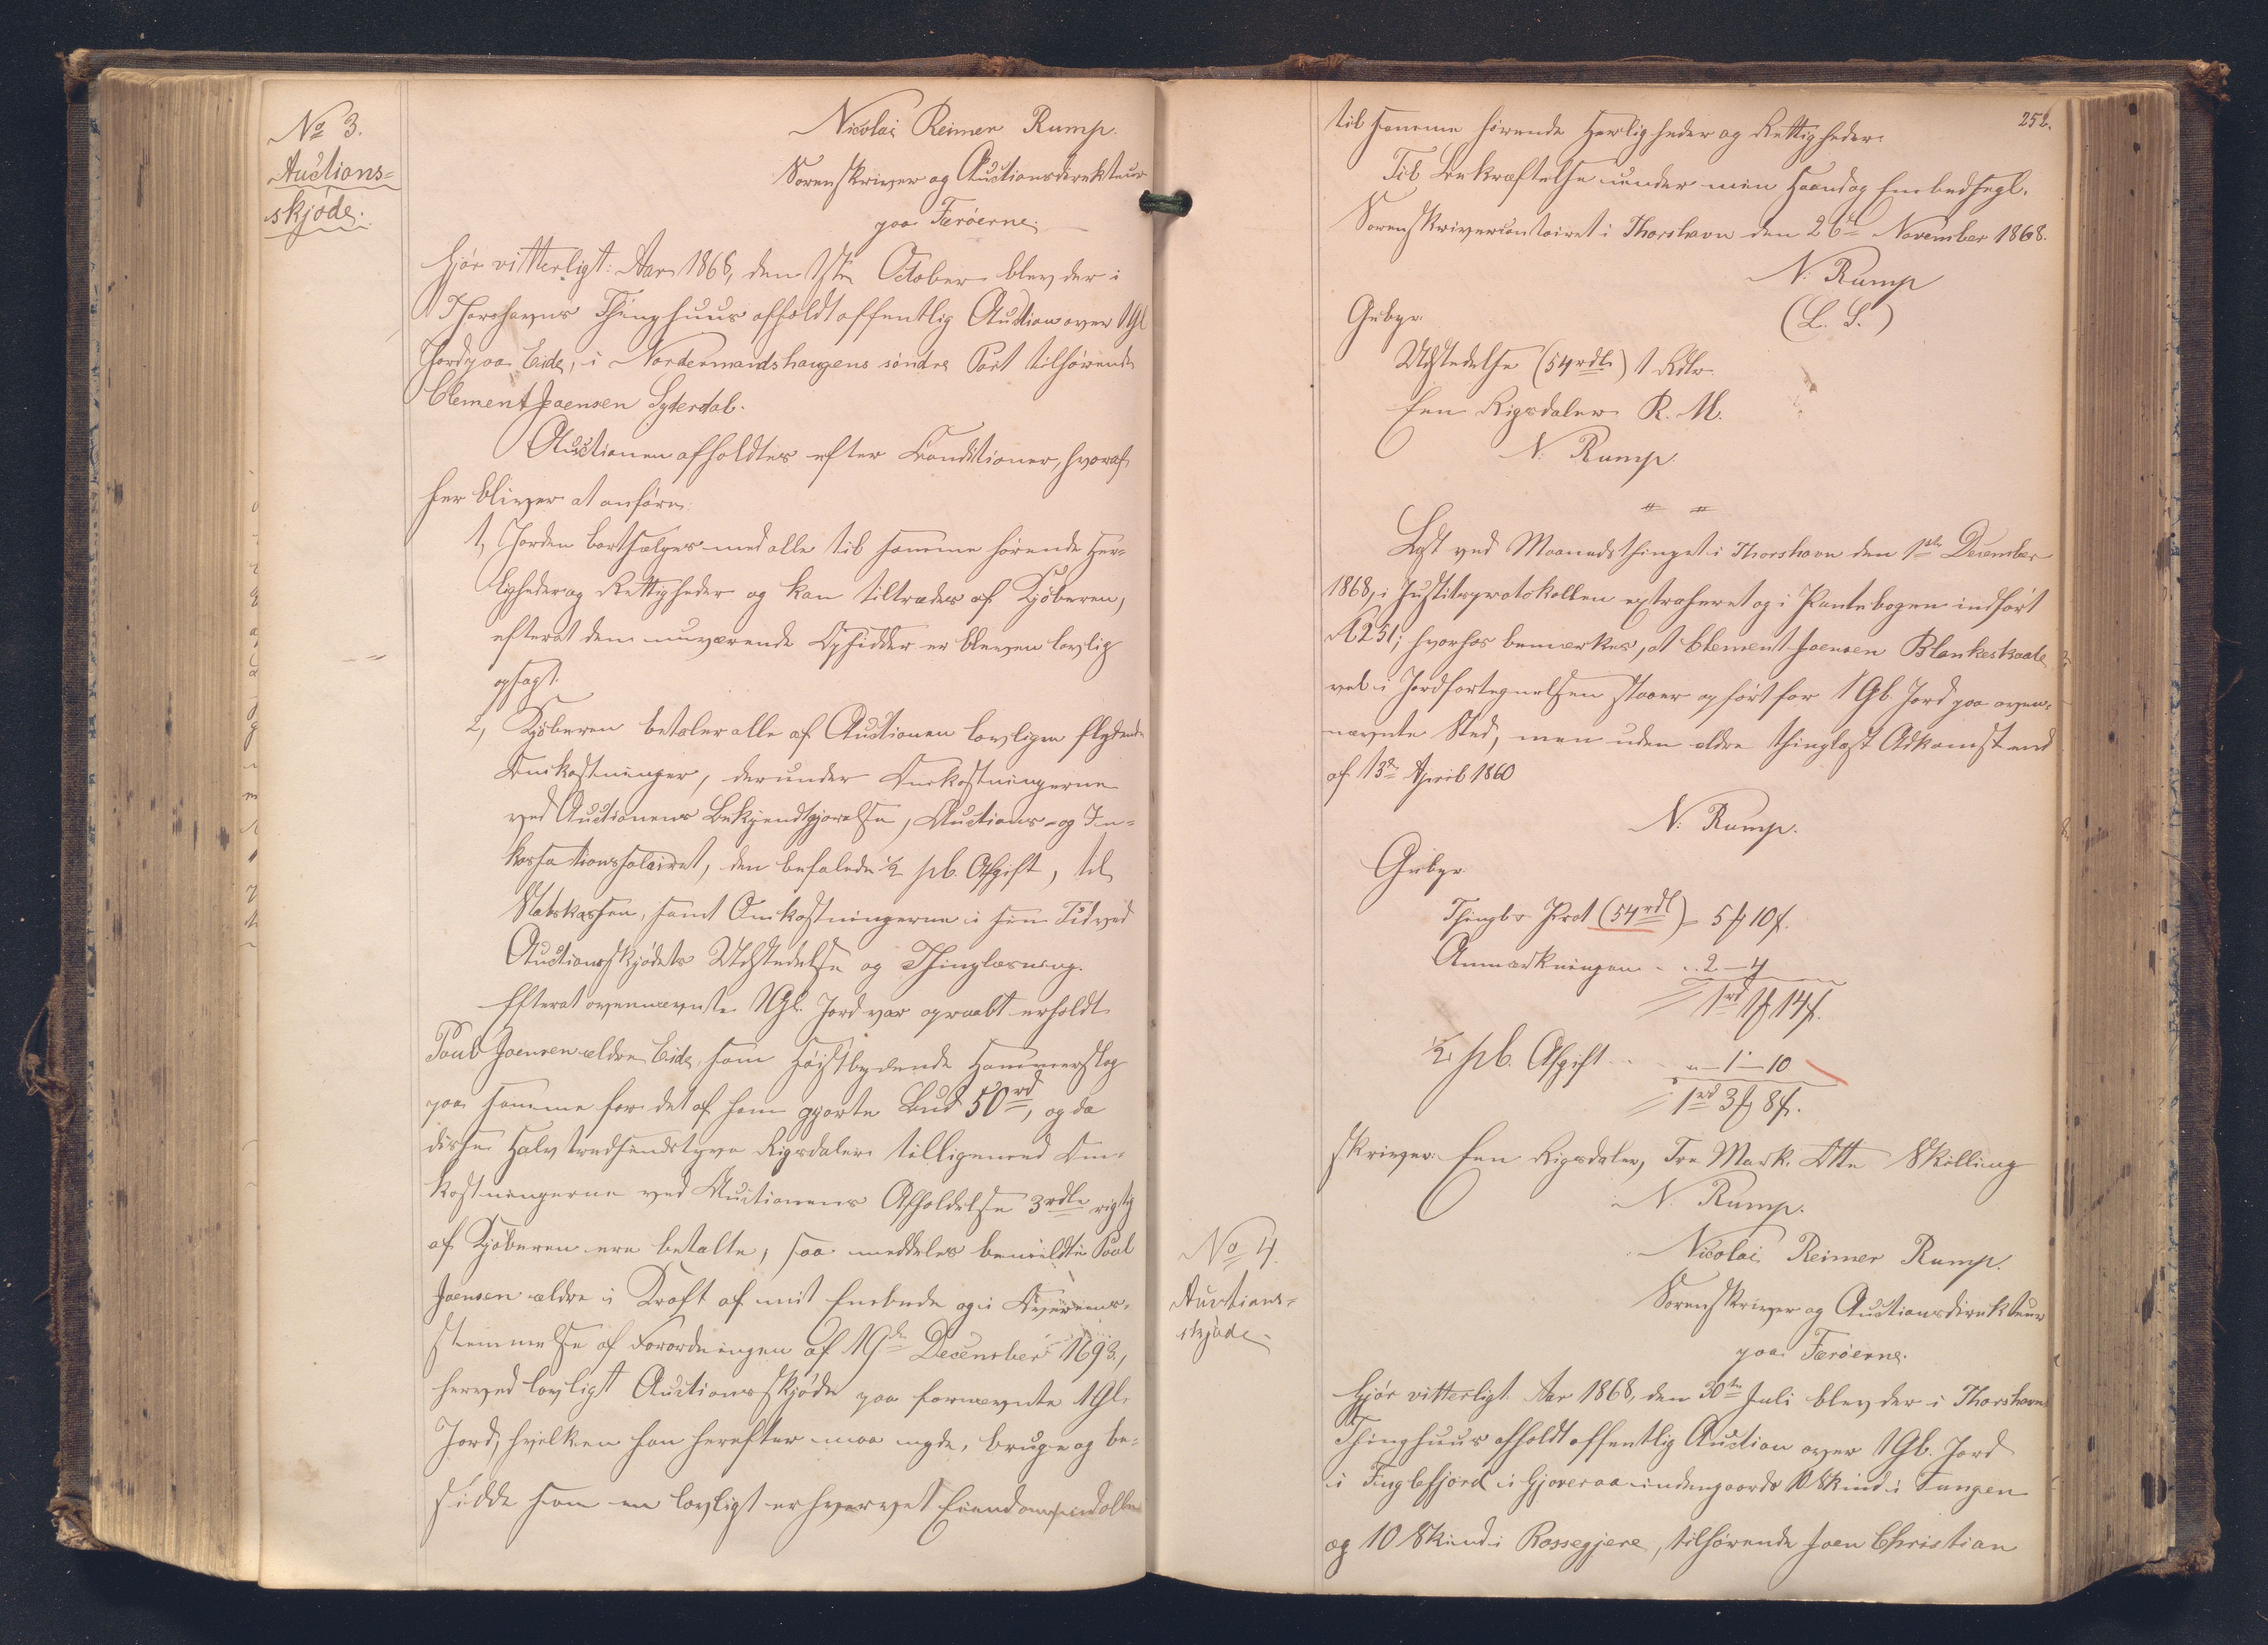 No 3.
Auctions=
skjøde.
Nicolai Reimer Rump.
Sorenskriver og Auctionsdirekteur
paa Færøerne.
Gjør vitterligt: Aar 1868, den 1ste October blev der i
Thorshavns Thinghuus afholdt offentlig Auction over 1 Gl
Jord paa Eide, i Nordenmandshaugens søndre Part tilhørende
Clement Joensen Syderdal.
Auctionen afholdtes efter Conditioner, hvoraf
her bliver at anføre:
1, Jorden bortsælges med alle til samme hørende Her=
ligheder og Rettigheder og kan tiltrædes af Kjøberen,
efterat den nuværende Opsidder er bleven lovlig
opsagt.
2, Kjøberen betaler alle af Auctionen lovligen flydende
Omkostninger, derunder Omkostningerne
ved Auctionens Bekjendtgjørelse, Auctions- og In=
kassationssalairet, den befalede ½ pC. Afgift, til
Statskassen, samt Omkostningerne i sin Tid ved
Auctionsskjødets Udstedelse og Thinglæsning.
Efterat ovennævnte 1 Gl. Jord var opraabt erholdt
Poul Joensen ældre Eide, som høistbydende Hammerslag
paa samme for det af ham gjorte Bud 50rd, og da
disse Halvtredsindstyve Rigsdaler tilligemed Om=
kostningerne ved Auctionens Afholdelse 3rdlr rigtig
af Kjøberen ere betalte, saa meddeles bemeldte Poul
Joensen ældre i Kraft af mit Embede og i Overens=
stemmelse af Forordningen af 19de December 1693,
herved lovligt Auctionsskjøde paa fornævnte 1 Gl.
Jord, hvilken han herefter maa nyde, bruge og be=
sidde som en lovligt erhvervet Eiendom med alle
252.
til samme hørende Herligheder og Rettigheder.
Til Bekræftelse under min Haand og Embedssegl.
Sorenskrivercontoiret i Thorshavn den 26de November 1868.
N. Rump
(L. S.)
Gebyr.
Udstedelse (54rdlr) 1 Rdlr
Een Rigsdaler R. M.
N. Rump.
Læst ved Maanedsthinget i Thorshavn den 1ste December
1868, i Justitsprotokollen extraheret og i Pantebogen indført
251; hvorhos bemærkes, at Clement Joensen Blankeskaale
vel i Jordfortegnelsen staaer opført for 1 Gl. Jord paa oven=
nævnte Sted, men uden ældre thinglæst Adkomst end
af 13de April 1860
N. Rump.
Gebyr
Thingl. Prot (54rdl) - 5 10
Anmærkningen . . 2 - 4
1rd 1 14
½ pC. Afgift . . " - 1 - 10
1rd 3 8
skriver: Een Rigsdaler, Tre Mark. Otte Skilling
N. Rump.
No 4.
Auctions=
skjøde.
Nicolai Reimer Rump.
Sorenskriver og Auctionsdirekteur
paa Færøerne.
Gjør vitterligt: Aar 1868, den 30te Juli blev der i Thorshavn
Thinghuus afholdt offentlig Auction over 1 Gl. Jord
i Fuglefjord i Gjoveraa indengaards 10 Skind i Tungen
og 10 Skind i Rossegjere, tilhørende Joen Christian